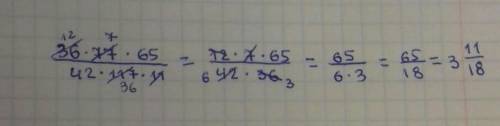 12 7
36 · 77 · 65 / 42 · 117 · 11 = 12 · 7 · 65 / 6 42 · 36 3 = 65 / 6 · 3 = 65 / 18 = 3 11/18
36